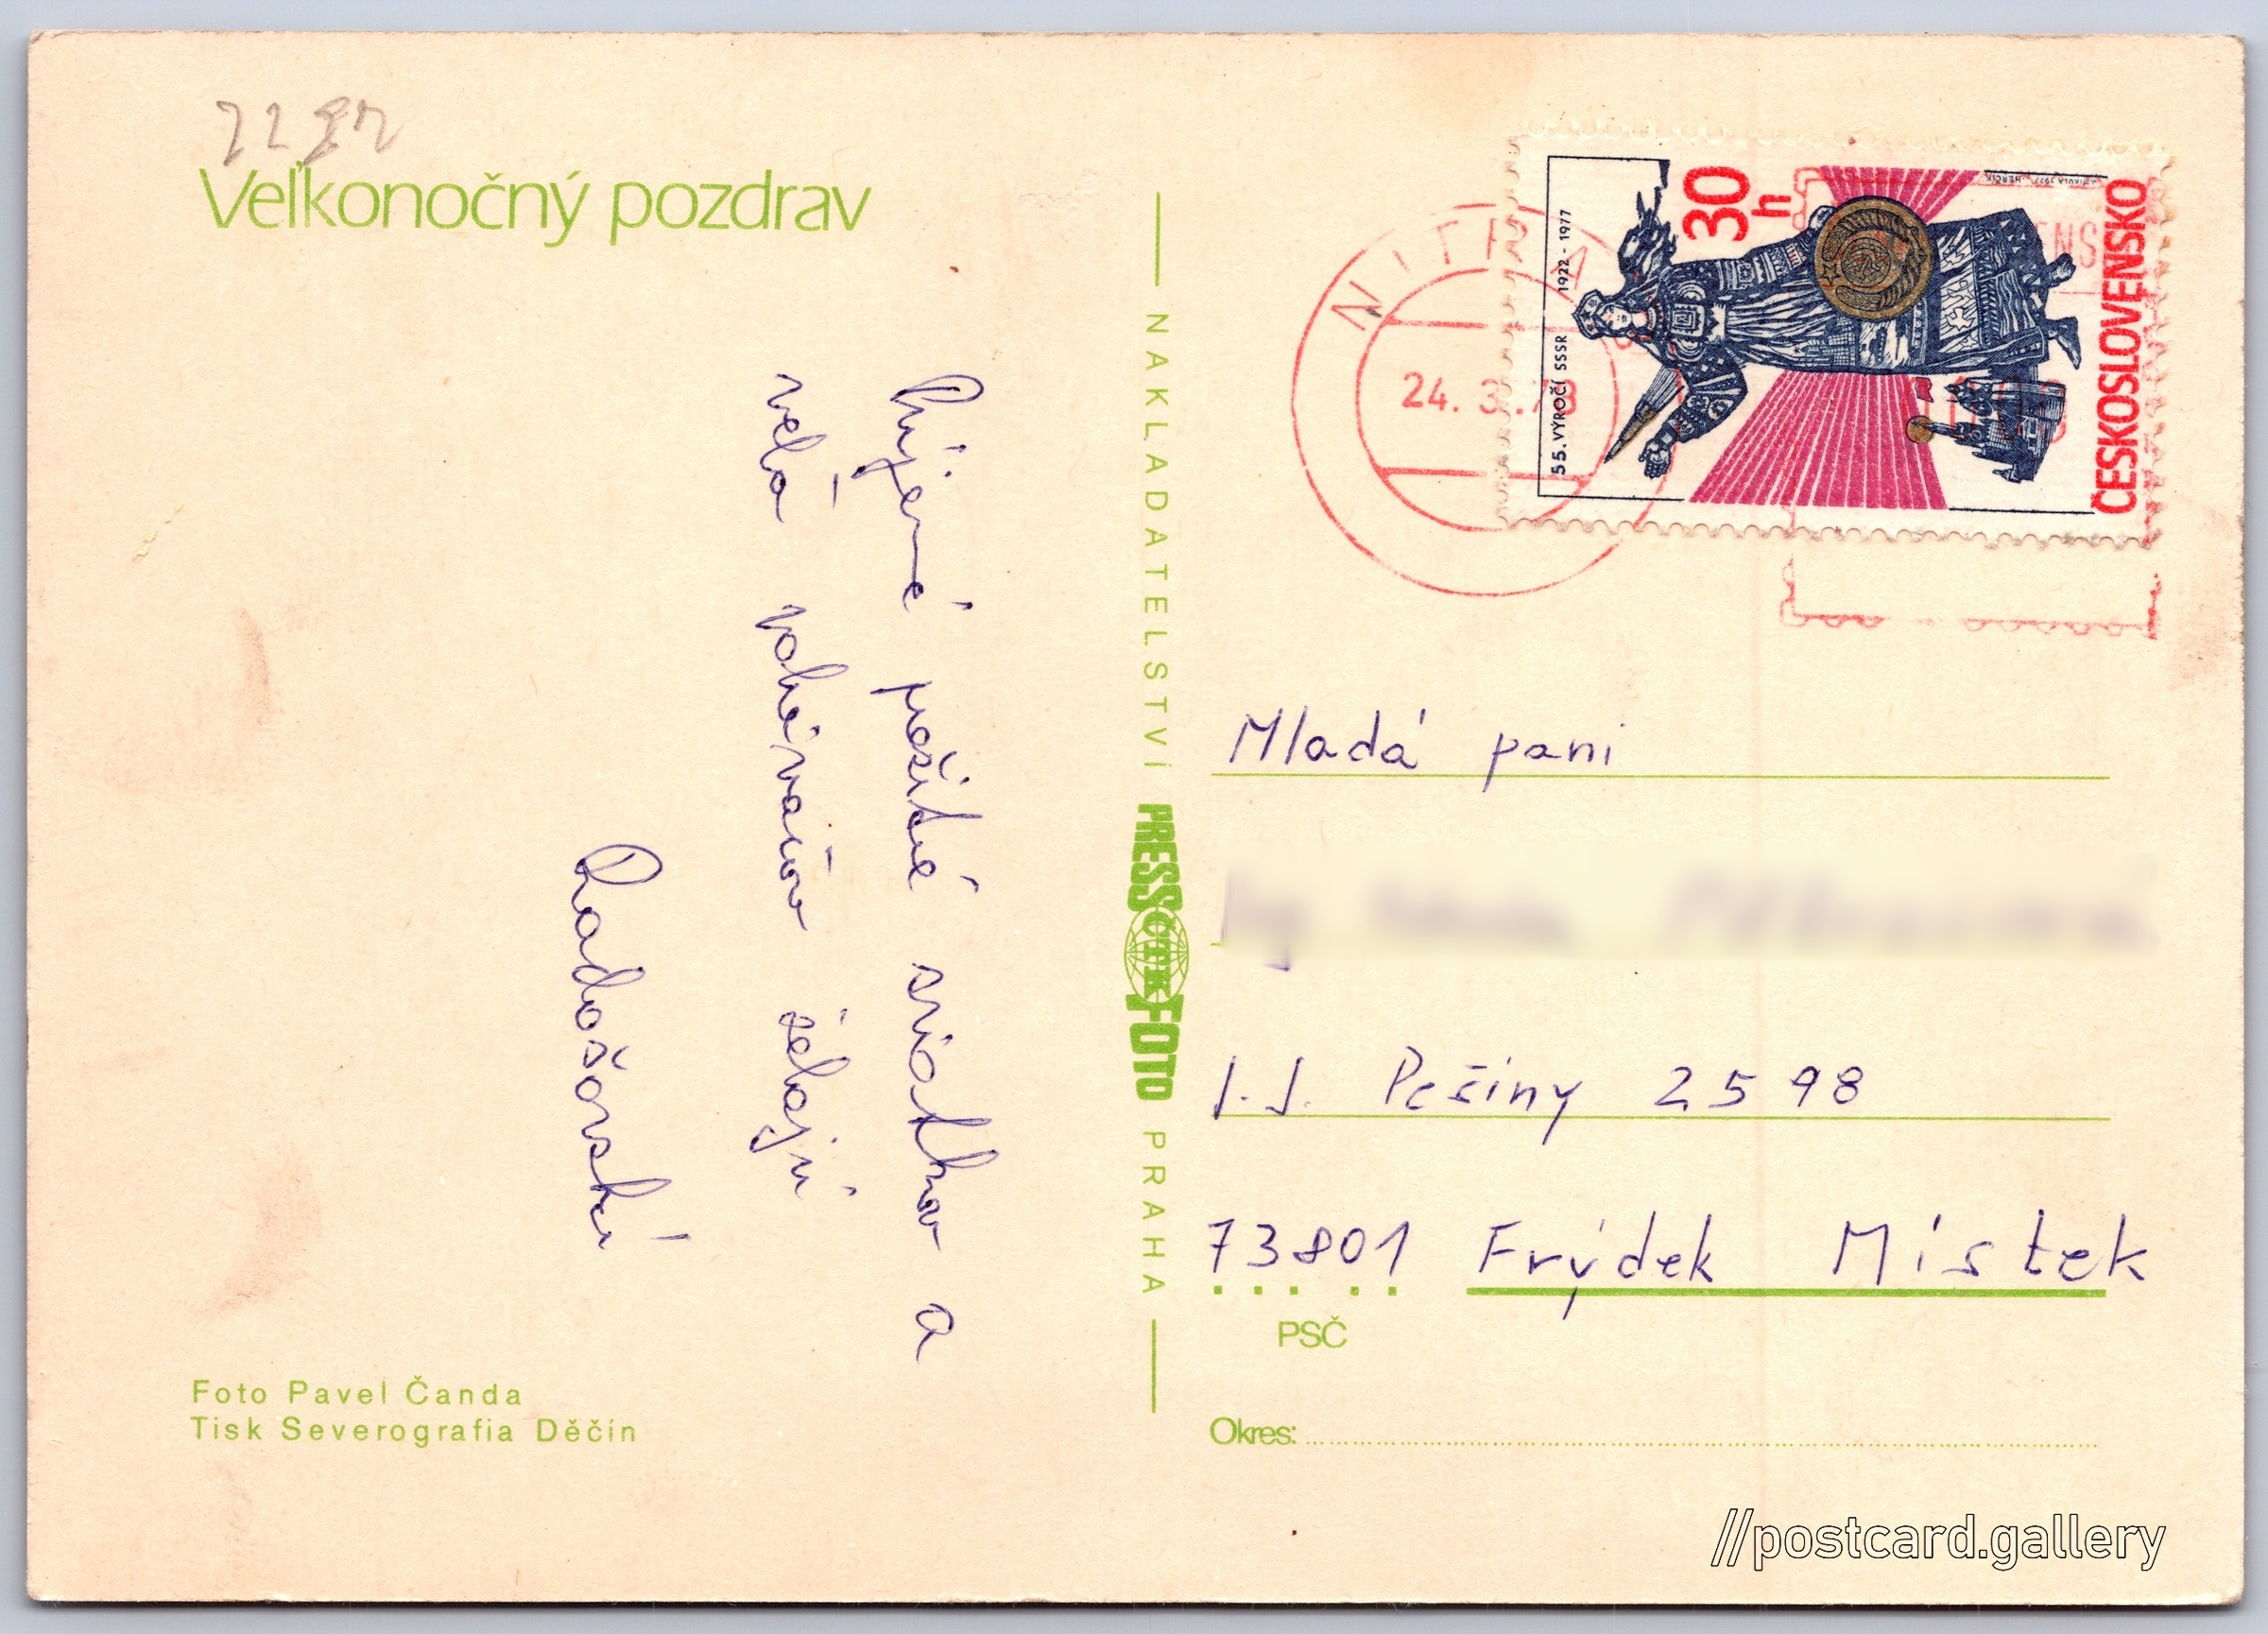 Veľkonočný pozdrav
Príjemné prežitie sviatkov a
veľa polievačov želajú
Radošovskí
Foto Pavel Čanda
Tisk Severografia Děčín
NAKLADATELSTVÍ PRESSFOTO PRAHA
ČTK
NITRA
24. 3. 78
55. VÝROČÍ SSSR 1922 - 1977
30 h
ČESKOSLOVENSKO
Mladá pani
J. J. Pešiny 2598
73801 Frýdek Místek
PSČ
Okres:
//postcard.gallery